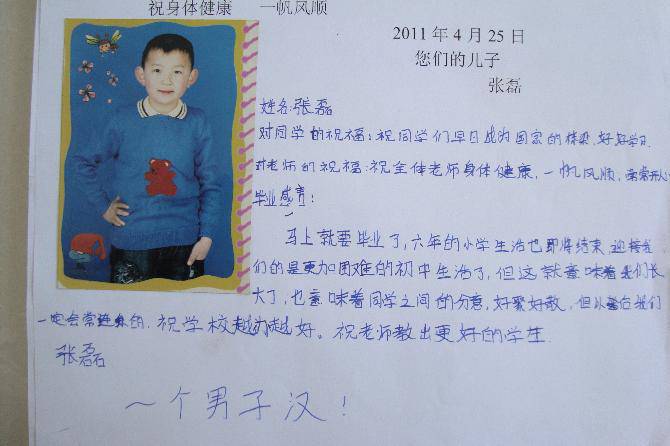 祝身体健康 一帆风顺
2011年4月25日
您们的儿子
张磊
姓名:张磊
对同学的祝福:祝同学们早日成为国家的栋梁,好好学习.
对老师的祝福:祝全体老师身体健康,一帆风顺,
毕业感言:
马上就要毕业了,六年的小学生活也即将结束,迎接我
们的是更加困难的初中生活了,但这就意味着我们长
大了,也意味着同学之间的分离,好聚好散,但
一定会常的.祝学校越办越好。祝老师教出更好的学生.
张磊
一个男子汉!